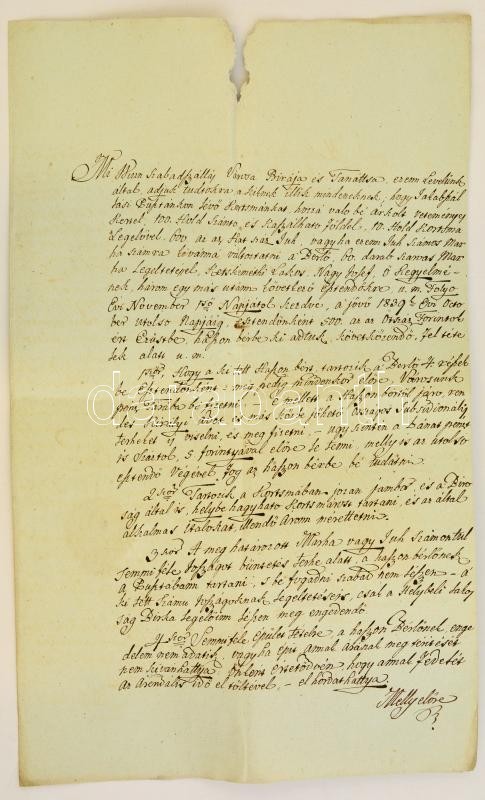 Mi Kiun Szabadszállás Városa Birája és Tanáttsa, ezenn Levelünk
által, adjuk tudtokra a kiknek illik mindeneknek, hogy Jakabszál
lási Pusztánkon lévő Kortsmánkat, hozzá való bé árkolt vetemenyes
Kertel, 100. Hold Szántó, és Kaszálható földel, 10. Hold Kortsma
Legelövel, 600. az az Hat száz Juh, vagy ha ezenn Juh Számos Mar
ha Számra kivánna változtatni a Bérlő, 60. darab Szarvas Mar
ha Legeltetéssel, Ketskeméthi Lakos Nagy Josef, ő Kegyelmé-
nek három egy más utánn következö eptendőkre u. m. Folyó
Évi November 1ső Napjátol kezdve, a jövő 1829k Évi Octo
ber utolsó Napjáig, Eptendőnként 500. az az Ötszáz Forintol
ért Ezüstbe, haszon bérbe ki adtuk, következendő, fel tété
lek alatt u. m.
1ször, Hogy a ki tett Haszon bért, tartozik a Bérlő 4. részek
be Eptendőnként - meg pedig mindenkor előre, Városunk
Pénz Tárába bé fizetni - e mellett a haszon bértől járó,
Királyi Adót és más közbe jöhető Országos Subsidionalis
terheket is viselni, és meg fizetni, - ugy szintén a Bánat pénzt
is
eptendő Végével fog az haszon bérbe bé tudatni.
2szor Tartozik a Kortsmában józan jámbor, és a Biró
ság által is, helybe hagyható Kortsmárost tartani, és az által
alkalmas Italokat, illendő Áronn méretteni.
3szor A meg határozott Marha vagy Juh Számon tul
semmi féle Joszágot büntetés terhe alatt, a haszon bérlőnek
a Pusztábann tartani, s bé fogadni szabad nem lészen - a
ki tett Számu Joszágoknak legeltetésére, csak a Helybéli Lakos
ság Birka Legelőinn lészen meg engedendő
4szer Semmi féle épület tételre a haszon Bérlőnek enge
delem nem adatik, vagy ha épit annak Árának meg téritését
nem kivánhattya, önként értetődvén, hogy annak fedelét
Az Árendális idő el töltével, - el hordathattya.
Melly előre